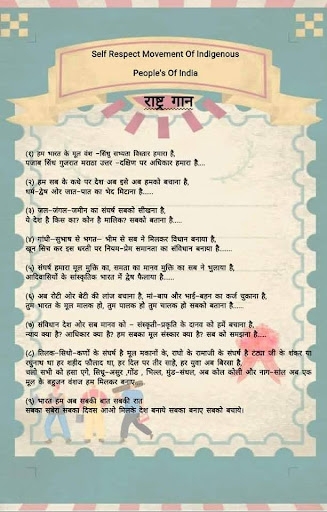 Self Respect Movement Of Indigenous
People's Of India
राष्ट्र गान
(१) हम भारत के मूल वंश -सिंधु सभ्यता विस्तार हमारा है,
पंजाब सिंध गुजरात मराठा उत्तर -दक्षिण पर अधिकार हमारा है....
(२) हम सब के कंधे पर देश अब इसे अब हमको बचाना है,
धर्म-द्वेष और जात-पात का भेद मिटाना है.....
(३) जल-जंगल-जमीन का संघर्ष सबको सीखना है,
ये देश है किस का? कौन है मालिक? सबको बताना है......
(४) गांधी-सुभाष से भगत- भीम से सब ने मिलकर विधान बनाया है,
खून सिंच कर इस धरती पर नियम-प्रेम समानता का संविधान बनाया है......
(५) संघर्ष हमारा मूल मुक्ति का, समता का मानव मुक्ति का सब ने भुलाया है,
आदिवासियों के सांस्कृतिक भारत में द्वेष फैलाया है.....
(६) अब रोटी और बेटी की लांज बचाना है, मां-बाप और भाई-बहन का कर्ज चुकाना है,
तुम भारत के मूल मालक हो, तुम पालक हो तुम चालक हो सबको बताना है.....
(७) संविधान देश और सब मानव को - संस्कृती-प्रकृति के दानव को हमें बचाना है,
न्याय क्या है? आधिकार क्या है? हम सबका मूल संस्कार क्या है? सब को समझाना है.....
(८) तिलक-सिधो-कर्णो के संघर्ष है मूल मकानों के, राघो के रामाजी के संघर्ष है टंट्या जी के शंकर या
रघुनाथ का हर शहीद फौलाद था, हर दिल पर तीर साहें, हर युवा अब बिरसा है,
चलो सभी को हसा एगे, सिंधू-असुर,गोंड , भिल्ल, मुंड-संथाल, अब कोल कोली और नाग-सांल अब एक
मूल के बहुजन वंशज हम मिलकर बनाए
(९) भारत हम अब सबकी बात सबकी रात
सबका सबेरा सबका दिवस आओ मिलके देश बनाये सबका बनाए सबको बचाये।